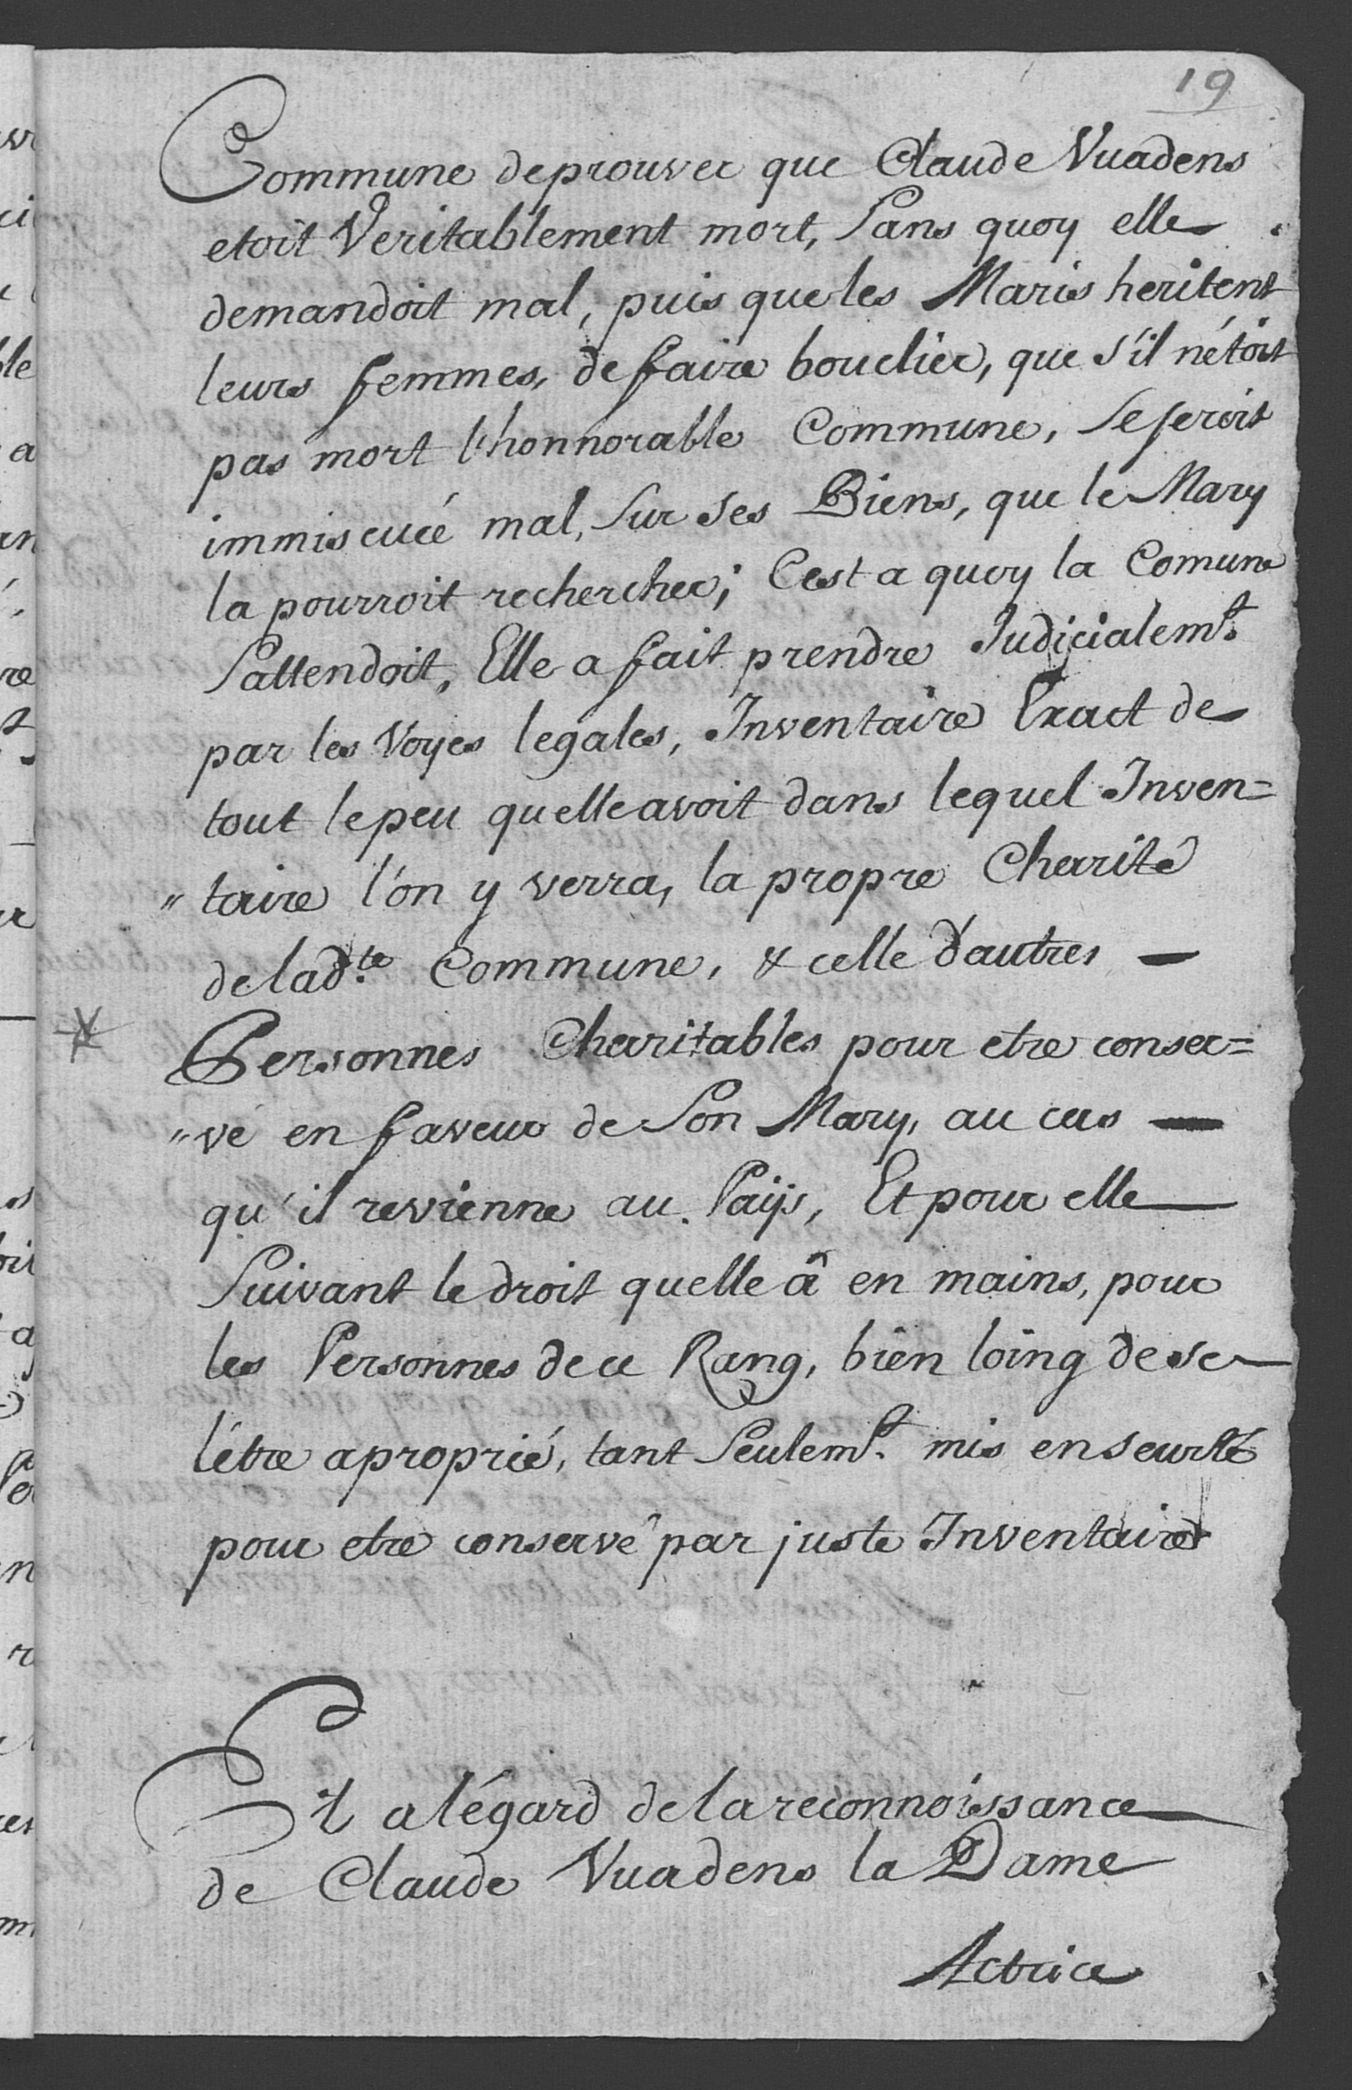 19
Commune de prouver que Claude Vuadens
etoit Veritablement mort, Sans quoy elle
demandoit mal, puis que les Maris heritent
leurs femmes, de faire bouclier, que s'il n'étoit
pas mort l'honnorable Commune, Se seroit
immiscuée mal, Sur ses Biens, que le Mary
la pourroit rechercher; C'est a quoy la Comune
Sattendoit, Elle a fait prendre Judicialem.t
par les Voyes legales, Inventaire Exact de
tout le peu quelle avoit dans lequel Inven=
" taire l'on y verra, la propre Charité
de lad.te Commune, & celle d'autres —
Personnes Charitables pour etre conser=
" vé en faveur de Son Mary, au cas —
qu'il revienne au Païjs, Et pour elle
Suivant le droit quelle â en mains, pour
les Personnes de ce Rang, bien loing de se
l'être aproprié, tant Seulem.t mis en seurté
pour etre conservé par juste Inventaire
Et a légard de la reconnoissance
de Claude Vuadens la Dame
Actrice